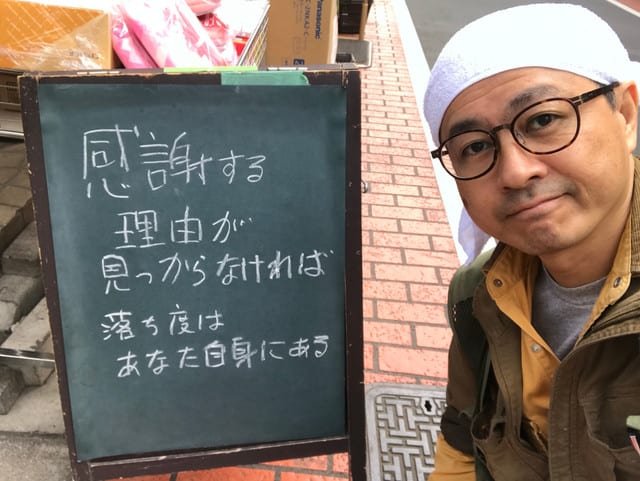 Panasonic
感謝する
理由が
見つからなければ
落ち度は
あなた自身にある